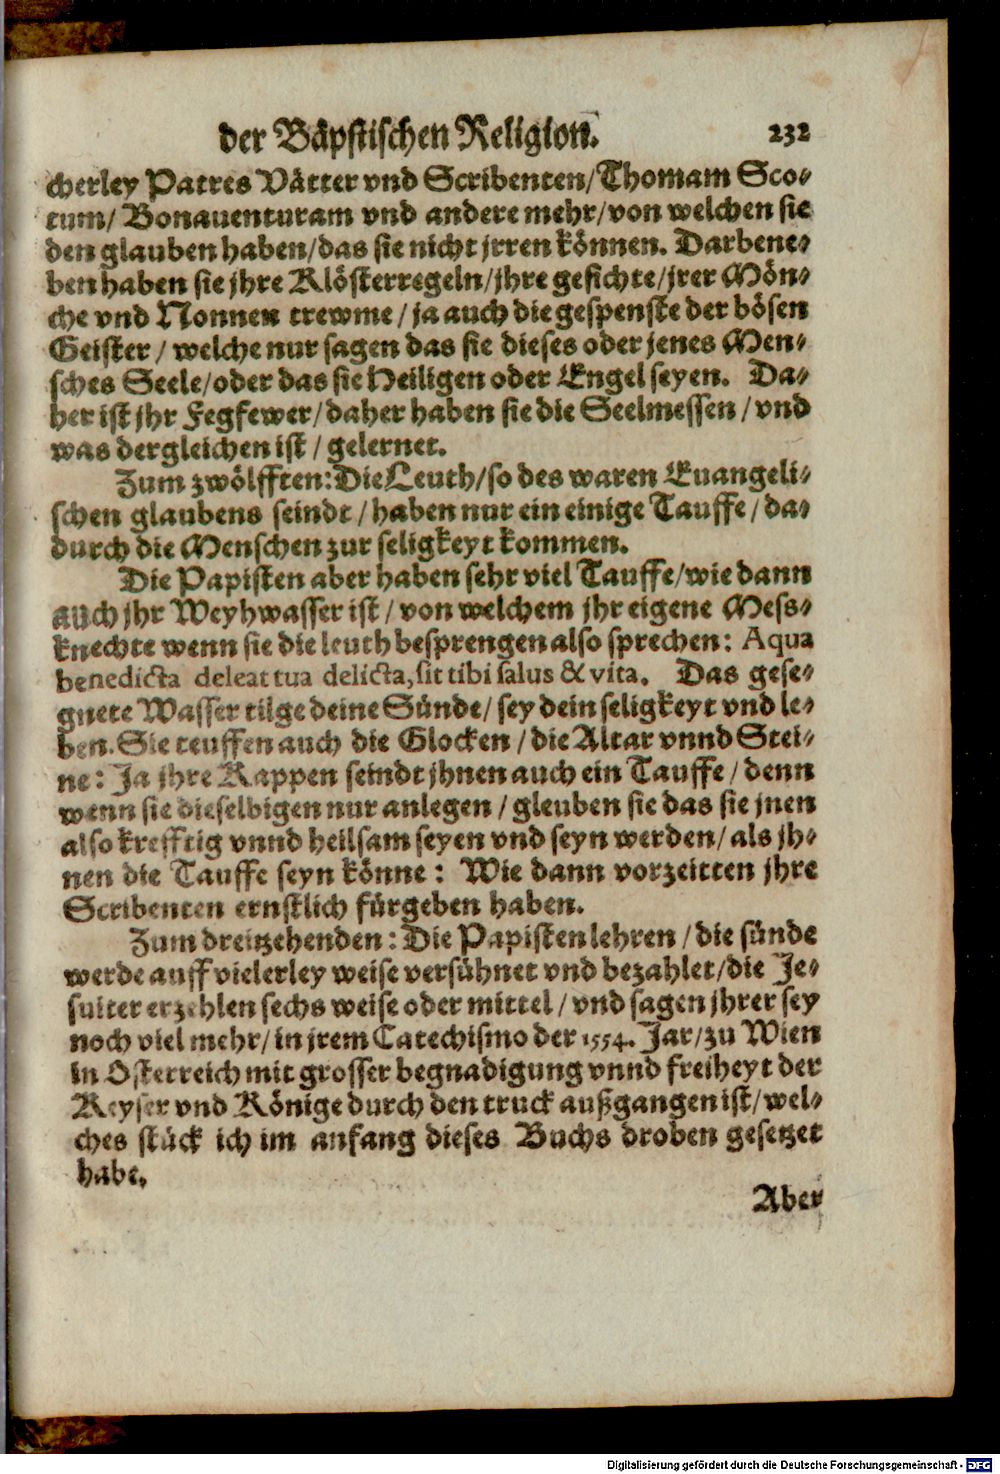 der Bäpstischen Religion. 232
cherley Patres Vätter vnd Scribenten/Thomam Sco-
tum/ Bonauenturam vnd andere mehr/von welchen sie
den glauben haben/das sie nicht jrren können. Darbene-
ben haben sie jhre Klösterregeln/jhre gesichte/jrer Mön-
che vnd Nonnen trewme/ja auch die gespenste der bösen
Geister/ welche nur sagen das sie dieses oder jenes Men-
sches Seele/oder das sie Heiligen oder Engel seyen. Da-
her ist jhr Fegfewer/daher haben sie die Seelmessen/vnd
was dergleichen ist/gelernet.
Zum zwölfften: Die Leuth/so des waren Euangeli-
schen glaubens seindt/haben nur ein einige Tauffe/da-
durch die Menschen zur seligkeyt kommen.
Die Papisten aber haben sehr viel Tauffe/wie dann
auch jhr Weyhwasser ist/von welchem jhr eigene Mess-
knechte wenn sie die leuth besprengen also sprechen: Aqua
benedicta deleat tua delicta, sit tibi salus & vita. Das gese-
gnete Wasser tilge deine Sünde/sey dein seligkeyt vnd le-
ben. Sie teuffen auch die Glocken/die Altar vnnd Stei-
ne: Ja jhre Kappen seindt jhnen auch ein Tauffe/denn
wenn sie dieselbigen nur anlegen/gleuben sie das sie jnen
also krefftig vnnd heilsam seyen vnd seyn werden/als jh-
nen die Tauffe seyn könne: Wie dann vorzeitten jhre
Scribenten ernstlich fürgeben haben.
Zum dreitzehenden: Die Papisten lehren/die sünde
werde auff vielerley weise versühnet vnd bezahlet/die Je-
suiter erzehlen sechs weise oder mittel/vnd sagen jhrer sey
noch viel mehr/in jrem Catechismo der 1554. Jar/zu Wien
in Osterreich mit grosser begnadigung vnnd freiheyt der
Keyser vnd Könige durch den truck außgangen ist/wel-
ches stück ich im anfang dieses Buchs droben gesetzet
habe.
Aber
Digitalisierung gefördert durch die Deutsche Forschungsgemeinschaft - DFG